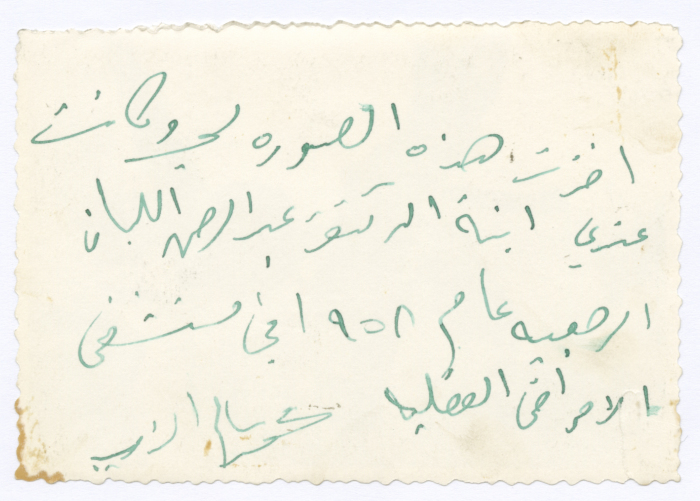 اخذت هذه الصوره لي وكانت
عندي ابنة الدكتور عبد الرحمن اللبان
الرجعيه عام ١٩٥٨ في مستشفى
الامراض العقليه
سالم